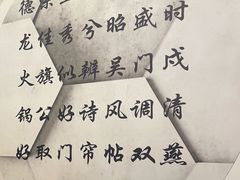 德
龙佳秀兮昭盛时
火旗似辫吴门戍
锅公好诗风调清
好取门帘帖双燕